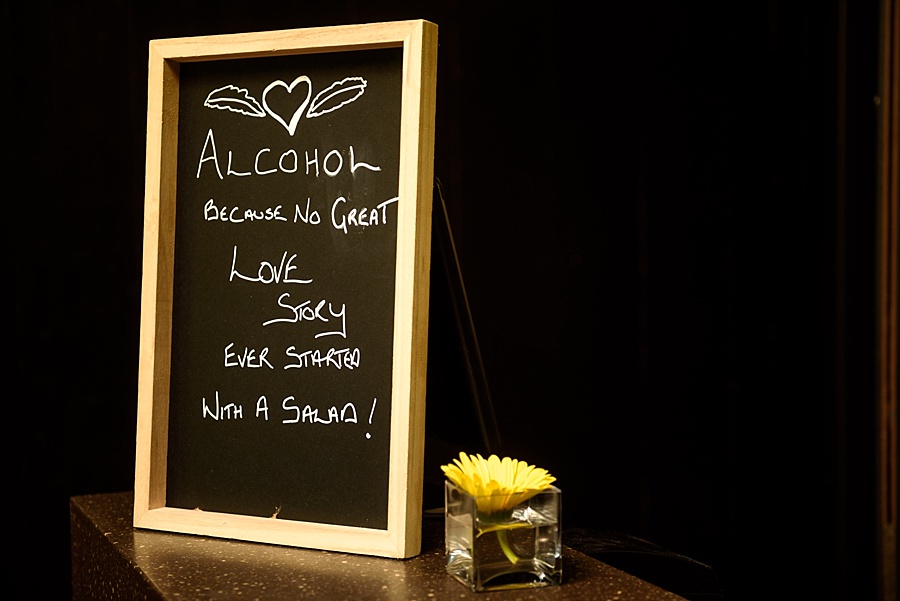 ALCOHOL
BECAUSE NO GREAT
LOVE
STORY
EVER STARTED
WITH A SALAD!